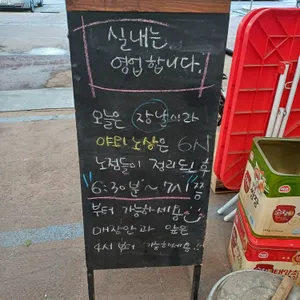 실내는
영업합니다.
오늘은 장날이라
야외노상은 6시
노점들이 정리된 후
"6:30분~7시쯤"
부터 가능하세용
매장안과 앞은
4시부터 가능하세용